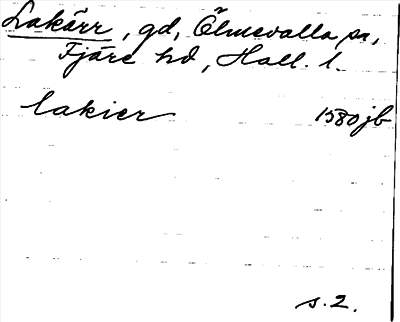 Lakärr, gd, Ölmevalla sn,
Fjäre hd, Hall. l.
lakier 1580 jb
s. 2.